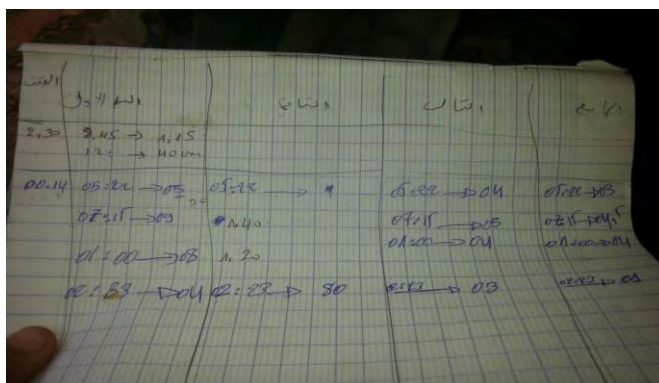 الوقت الاول الثاني الثالث الرابع
2,30 9,45 → 1,15
→ 40 cm
00.14 05:22 → 05 05:22 → 1 05:22 → 04 05:22 → 03
07:15 → 09 1.40 07:15 → 05 07:15 → 04,5
01:00 → 08 1.20 01:00 → 04 01:00 → 04
02:33 → 04 02:23 → 80 02:23 → 03 02:23 → 01